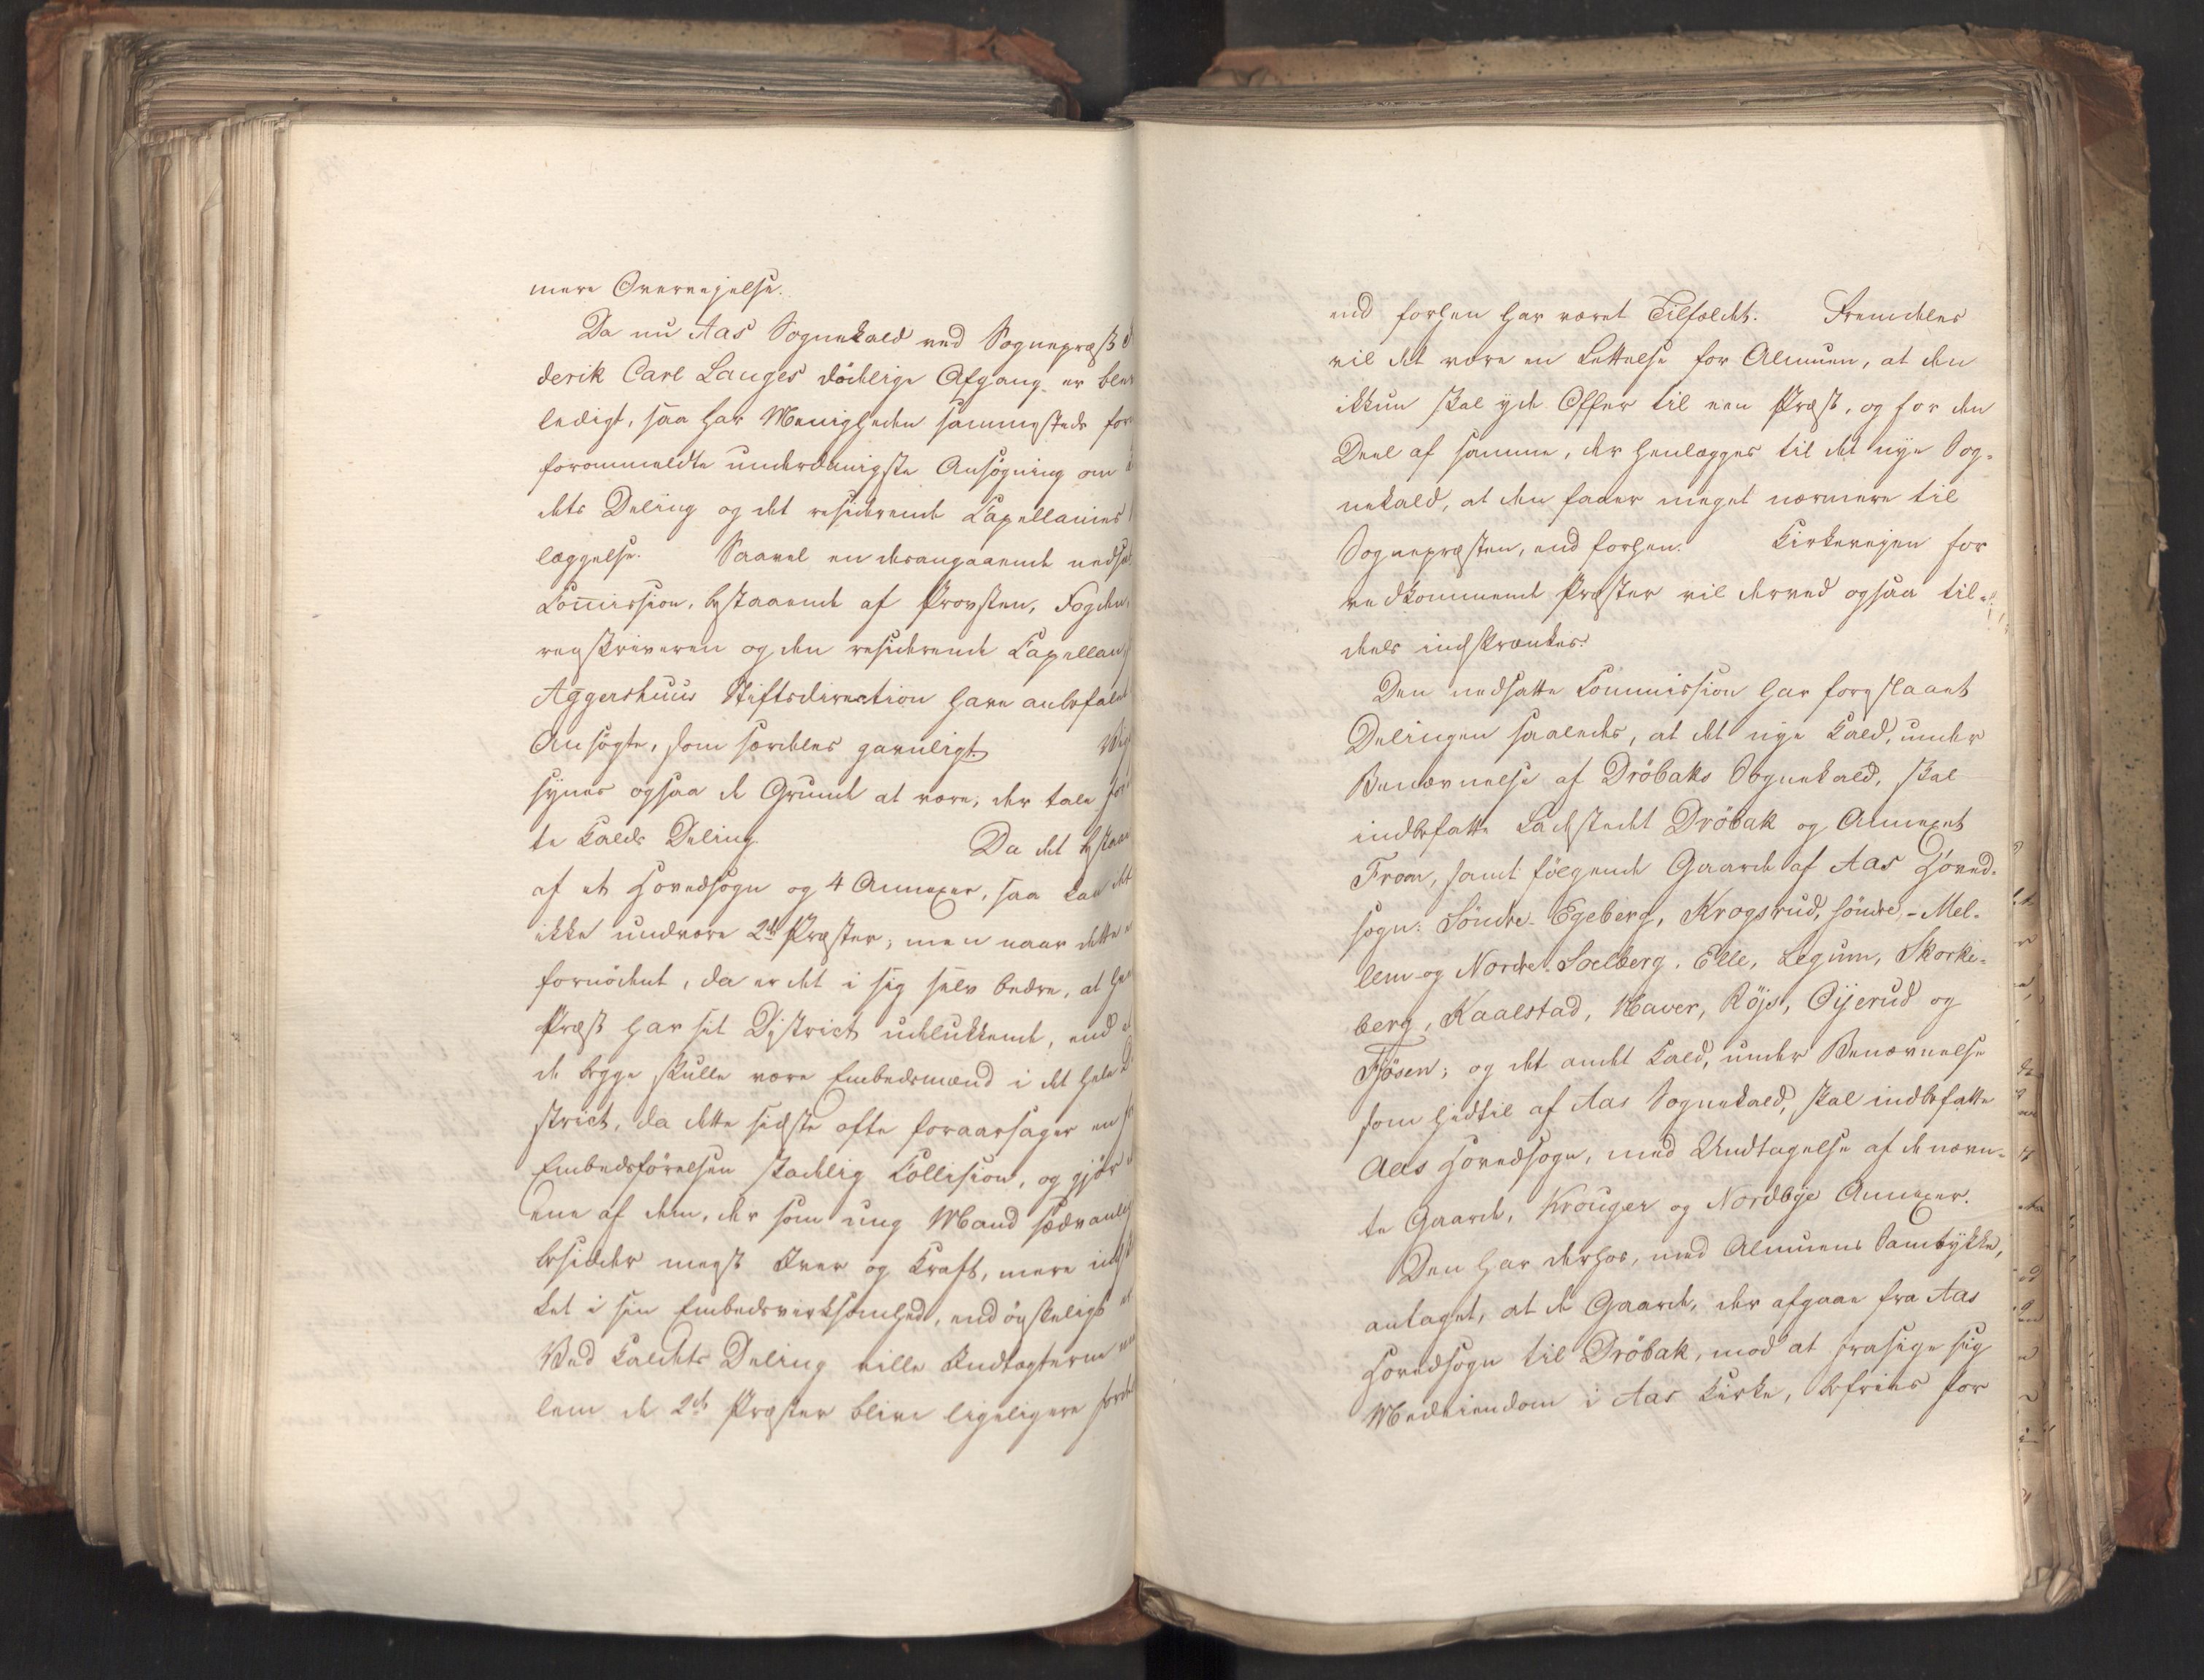 mere Overvejelse.
Da nu Aas Sognekald ved Sognepræst
derik Carl Langes dödelige Afgang er blev
ledigt, saa har Menigheden sammesteds for
forommeldte underdanigste Ansögning om
dets Deling og det residerende Capellanies
læggelse. Saavel en desangaaende nedsat
Comission, bestaaende af Provsten, Fogden,
renskriveren og den residerende Capellan,
Aggershuus Stiftsdirection have anbefalet
Ansögte, som særdeles gavnligt.
synes ogsaa de Grunde at være, der tale for
te Kalds Deling. Da det bestaar
af et Hovedsogn og 4 Annexer, saa kan det
ikke undvære 2de Præster; men naar dette
fornödent, da er det i sig selv bedre, at
Præst har sit District udelukkende, end
de begge skulle være Embedsmænd i det hele
strict, da dette sidste ofte foraarsager en
Embedsförelsen skadelig Collision, og gjör
ene af dem, der som ung Mand sædvanlig
besidder megst Iver og Kraft, mere
ket i sin Embedsvirksomhed, end önskeligt
Ved Kaldets Deling ville Indtægterne
lem de 2de Præster blive ligeligere fordel
end forhen har været Tilfældet. Fremdeles
vil det være en Lettelse for Almuen, at den
ikkun skal yde Offer til een Præst, og for den
Deel af samme, der henlægges til det nye Sog-
nekald, at den faaer meget nærmere til
Sognepræsten, end forhen. Kirkevejen for
vedkommende Præster vil derved ogsaa til-
deels indskrænkes.
Den nedsatte Commission har foreslaaet
Delingen saaledes, at det nye Kald, under
Benævnelse af Dröbaks Sognekald, skal
indbefatte Ladestedet Dröbak og Annexet
Froen, samt fölgende Gaarde af Aas Hoved-
sogn: Söndre Egeberg, Krogsrud, söndre-Mel-
lem- og Nordre Solberg, Elle, Legum, Skorke-
berg, Kaalstad, Haver, Röjs, Oijerud og
Fjösen; og det andet Kald, under Benævnelse
som hidtil af Aas Sognekald, skal indbefatte
Aas Hovedsogn, med Undtagelse af de nævn-
te Gaarde, Krouger og Nordbye Annexer.
Den har derhos, med Almuens Samtykke,
antaget, at de Gaarde, der afgaae fra Aas
Hovedsogn til Dröbak, mod at frasige sig
Medeiendom i Aas Kirke, befries for